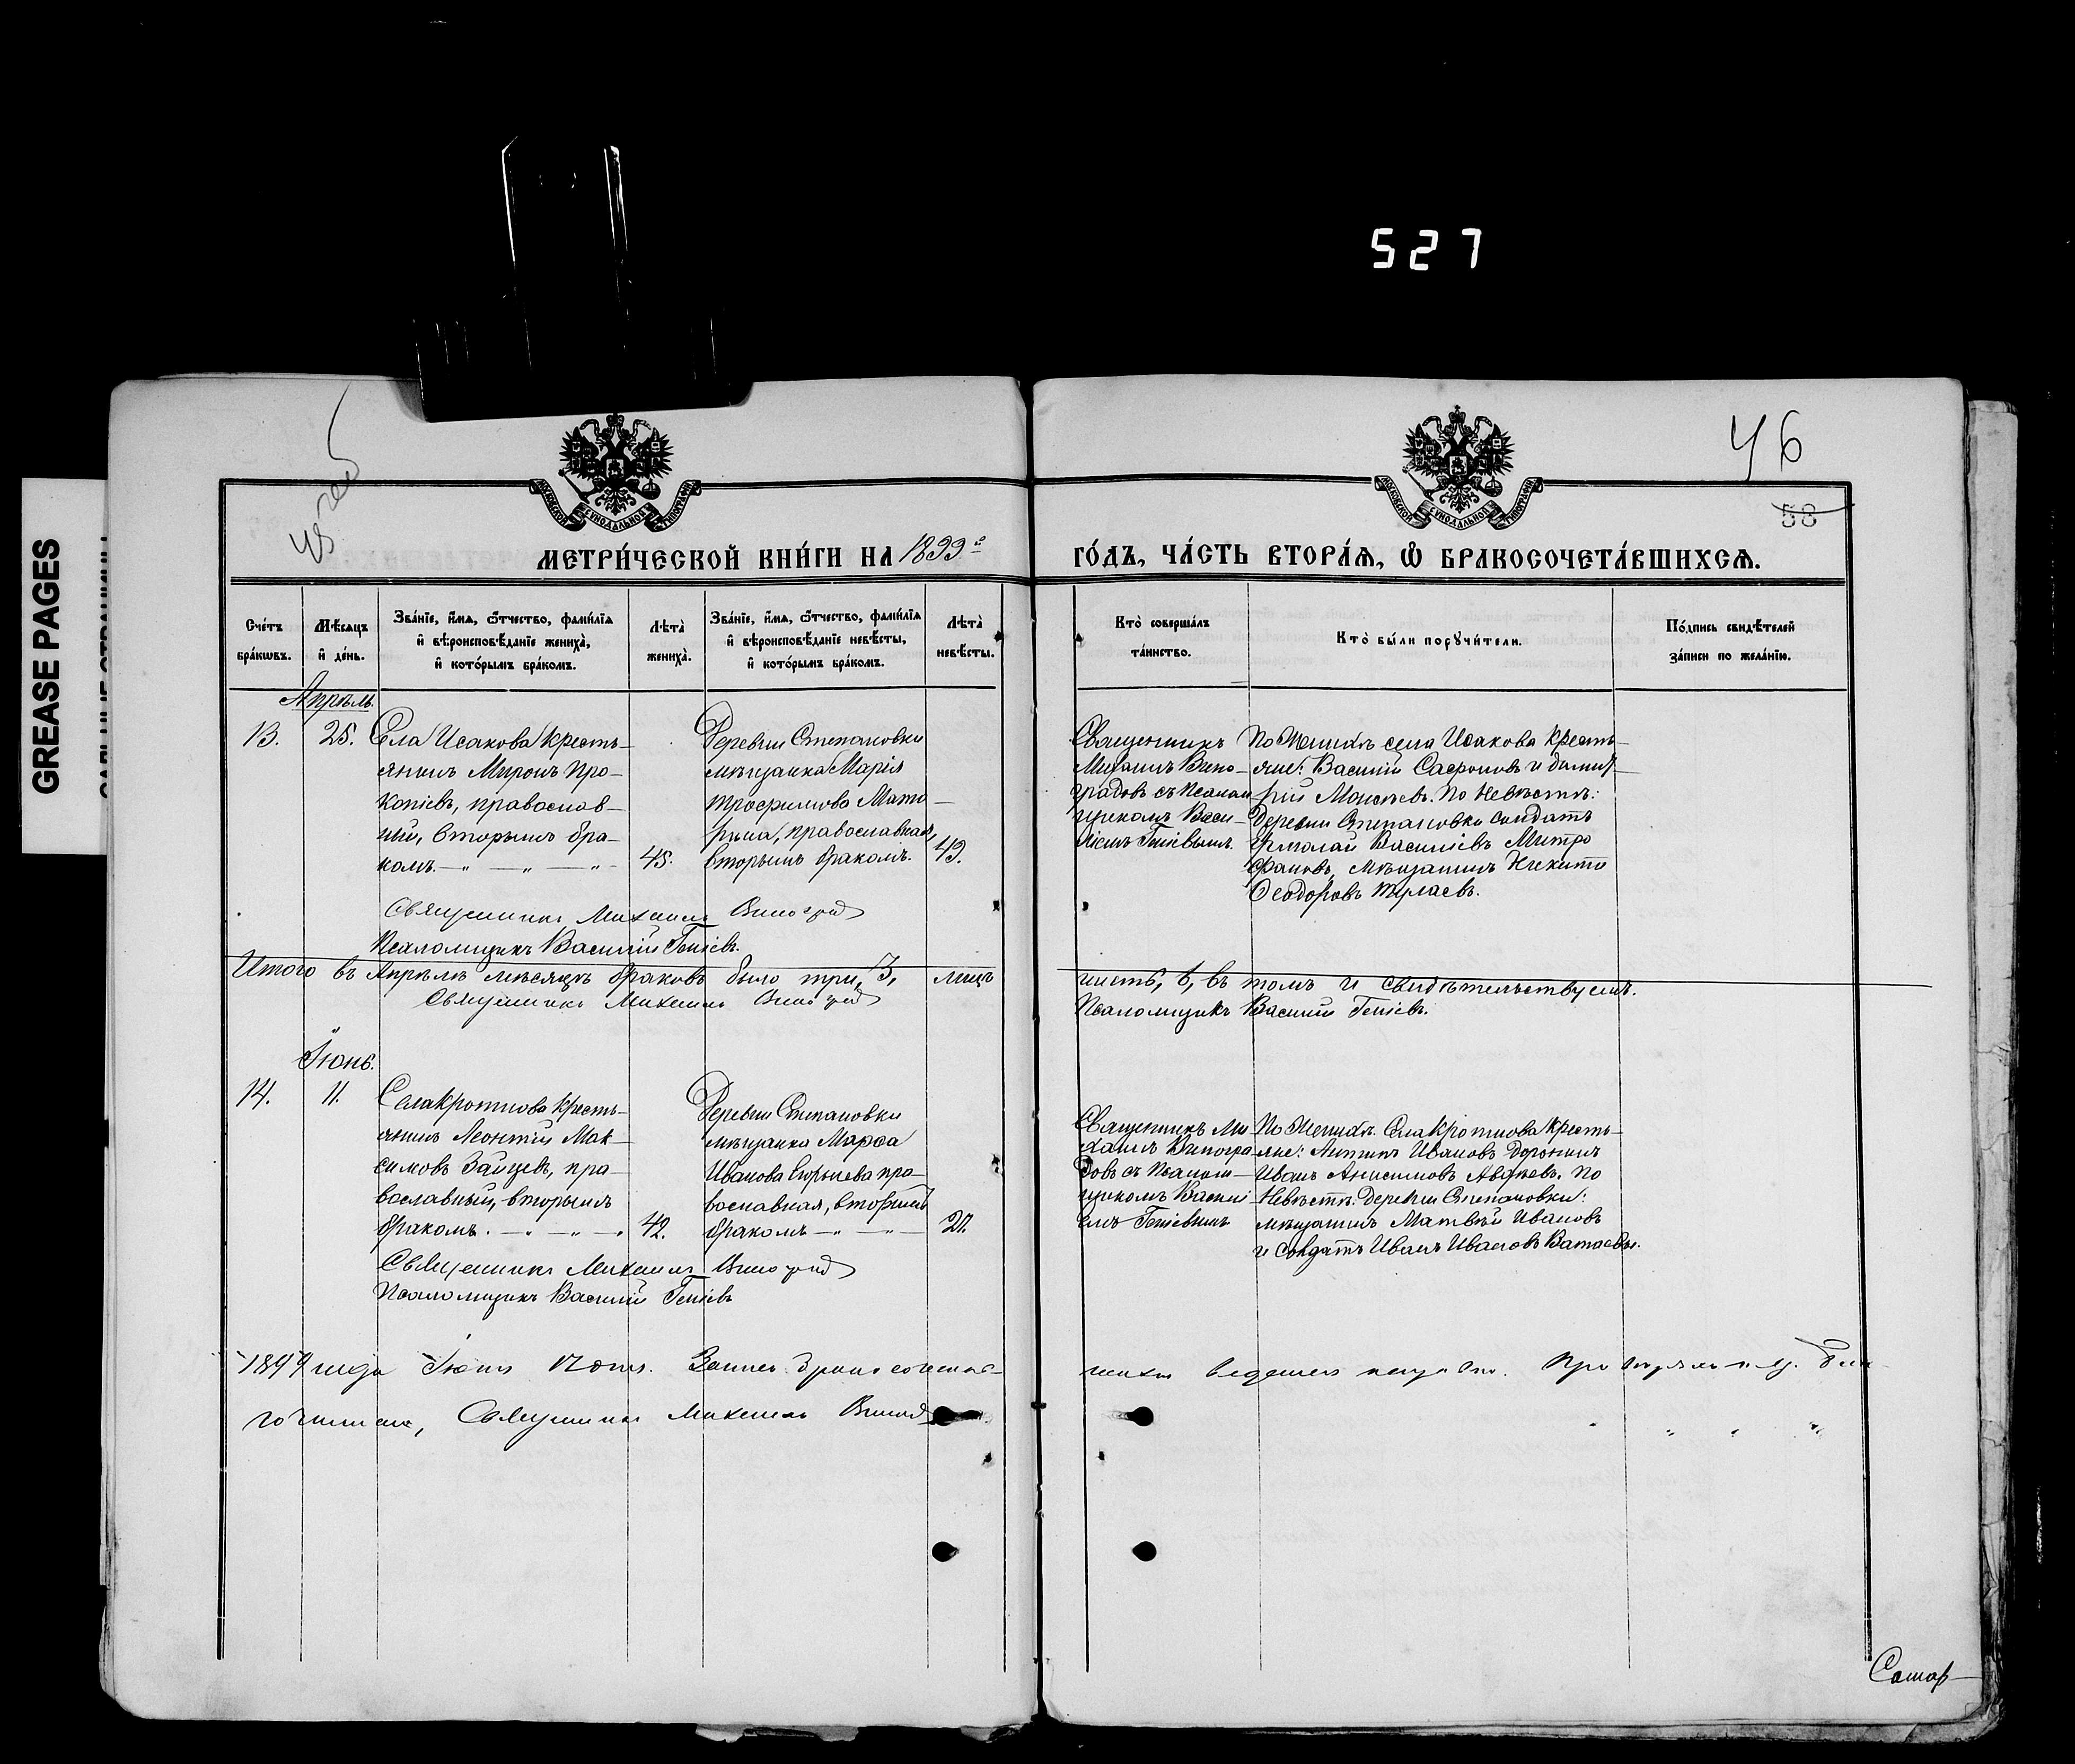 527
GREASE PAGES
46
58
МЕТРИ́ЧЕСКОЙ КНИ́ГИ НА 1899 ГО́ДЪ, ЧА́СТЬ ВТОРА́Я, Ѡ БРАКОСОЧЕТА́ВШИХСЯ.
Сче́тъ бра́кѡвъ.
Мѣ́сяцъ и де́нь.
Зва́нїе, и́мя, ѻ́тчество, фами́лїя и вѣроисповѣ́данїе жениха̀, и кото́рымъ бра́комъ.
Лѣта̀ жениха̀.
Зва́нїе, и́мя, ѻ́тчество, фами́лїя и вѣроисповѣ́данїе невѣ́сты, и кото́рымъ бра́комъ.
Лѣта̀ невѣ́сты.
Кто̀ соверша́лъ та́инство.
Кто̀ бы́ли порꙋчи́тели.
По́дпись свидѣ́телей за́писи по жела́нїю.
Апрѣль.
13.
25.
Села Исакова кресть-
янинъ Миронъ Про-
копіевъ, православ-
ный, вторымъ бра-
комъ.
45.
Деревни Степановки
мѣщанка Марія
Трофимова
православная,
вторымъ бракомъ.
43.
Священникъ
Михаилъ Вино-
градовъ съ Псалом-
щикомъ Васи-
ліемъ Геніевымъ.
По Женихѣ села Исакова кресть-
яне: Василій Сафроновъ и Димит-
рій Моисеевъ. По Невѣстѣ:
Деревни Степановки солдатъ
Ермолай Василіевъ Митро
фановъ, мѣщанинъ Никита
Ѳеодоровъ Тулаевъ.
Священникъ Михаилъ Виноград
Псаломщикъ Василій Геніевъ.
Итого въ Апрѣлѣ мѣсяцѣ браковъ было три, 3, лицъ
шесть, 6, въ томъ и свидѣтельствуемъ.
Священникъ Михаилъ Виноград
Псаломщикъ Василій Геніевъ.
Іюнь.
14.
11.
Села Кроткова кресть-
янинъ Леонтій Мак-
симовъ Зайцевъ, пра-
вославный, вторымъ
бракомъ.
42.
Деревни Степановки
мѣщанка Марѳа
Иванова пра-
вославная, вторымъ
бракомъ
27.
Священникъ Ми-
хаилъ Виногра-
довъ съ Псалом-
щикомъ Василі-
емъ Геніевымъ
По Женихѣ: Села Кроткова кресть-
яне: Антипъ Ивановъ Доронинъ
Иванъ Анисимовъ Авдѣевъ. По
Невѣстѣ: деревни Степановки:
мѣщанинъ Матвѣй Ивановъ
и солдатъ Иванъ Ивановъ
Священникъ Михаилъ Виноград
Псаломщикъ Василій Геніевъ
1899 года Іюня 12 дня. Запись бракосочетав-
шихся ведется
Священникъ Михаилъ
Самар-